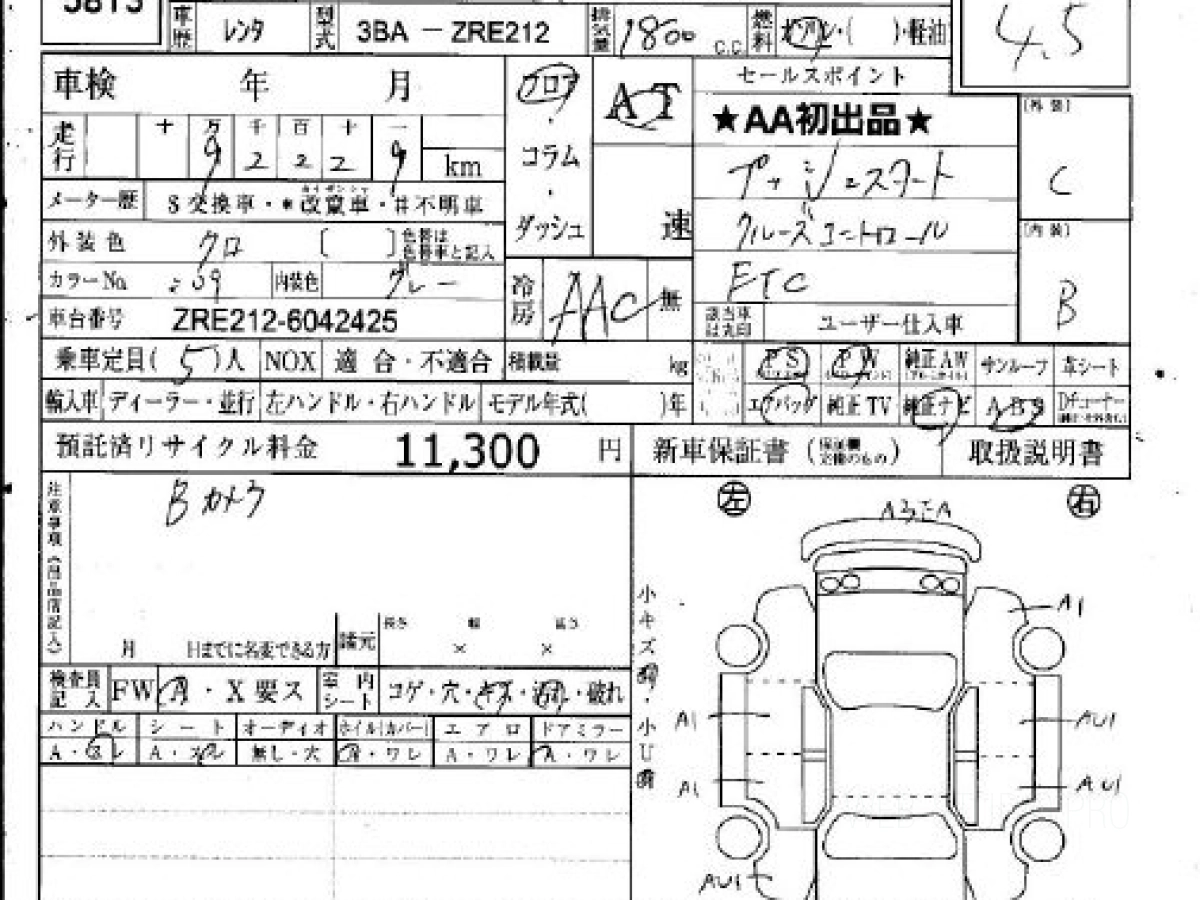 5813
車歴 レンタ 型式 3BA － ZRE212 排気量 1800 C.C. 燃料 ガソリン・( )・軽油 4.5
車検 年 月 フロア AT セールスポイント [外装]
十 万 千 百 十 一 ★AA初出品★
走行 9 2 2 2 9 km コラム プッシュスタート C
メーター歴 $交換車・*改竄車・#不明車 速 クルーズコントロール [内装]
外装色 クロ [ ] 色替は色替車と記入 ダッシュ
カラーNo. 209 内装色 グレー 冷房 AAC 無 ETC B
車台番号 ZRE212-6042425 該当車は丸印 ユーザー仕入車
乗車定員( 5 )人 NOX 適合・不適合 積載量 kg PS PW 純正AW サンルーフ 革シート
輸入車 ディーラー・並行 左ハンドル・右ハンドル モデル年式( )年 エアバッグ 純正TV 純正ナビ ABS Dチューナー
預託済リサイクル料金 11,300 円 新車保証書 (保証欄完備のもの) 取扱説明書
注意事項 Bカメラ 左 右
A3ΞA
小キズ
A1
月 日までに名変できる方 諸元 長さ × 幅 × 高さ
検査員記入 FW A・X要ス 室内シート コゲ・穴・キズ・汚れ・破れ
ハンドル シート オーディオ ホイル(カバー) エアロ ドアミラー 小U
A・スレ A・スレ 無し・大 A・ワレ A・ワレ A・ワレ
A1 AU1
A1 AU1
AU1